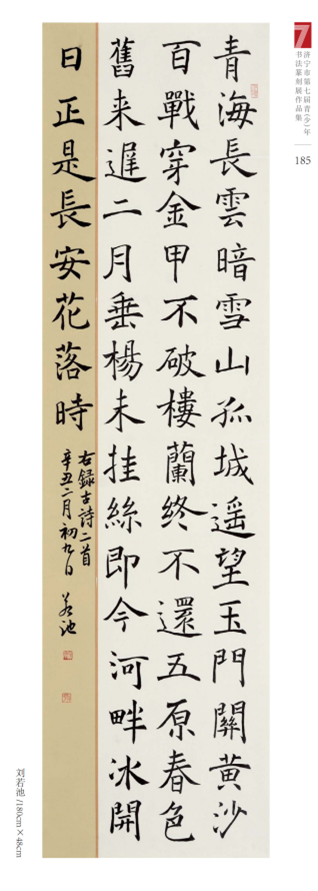 青海長雲暗雪山孤城遥望玉門關黄沙
百戰穿金甲不破樓蘭終不還五原春色
舊来遲二月垂楊未挂絲即今河畔冰開
日正是長安花落時
右録古詩二首
辛丑二月初九日 若池
7
济宁市第七届青(少)年
书法篆刻展作品集
185
刘若池/180cm×48cm